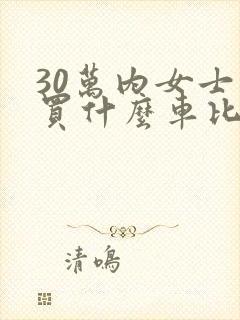 30萬内女士
買什麼車比
清鳴